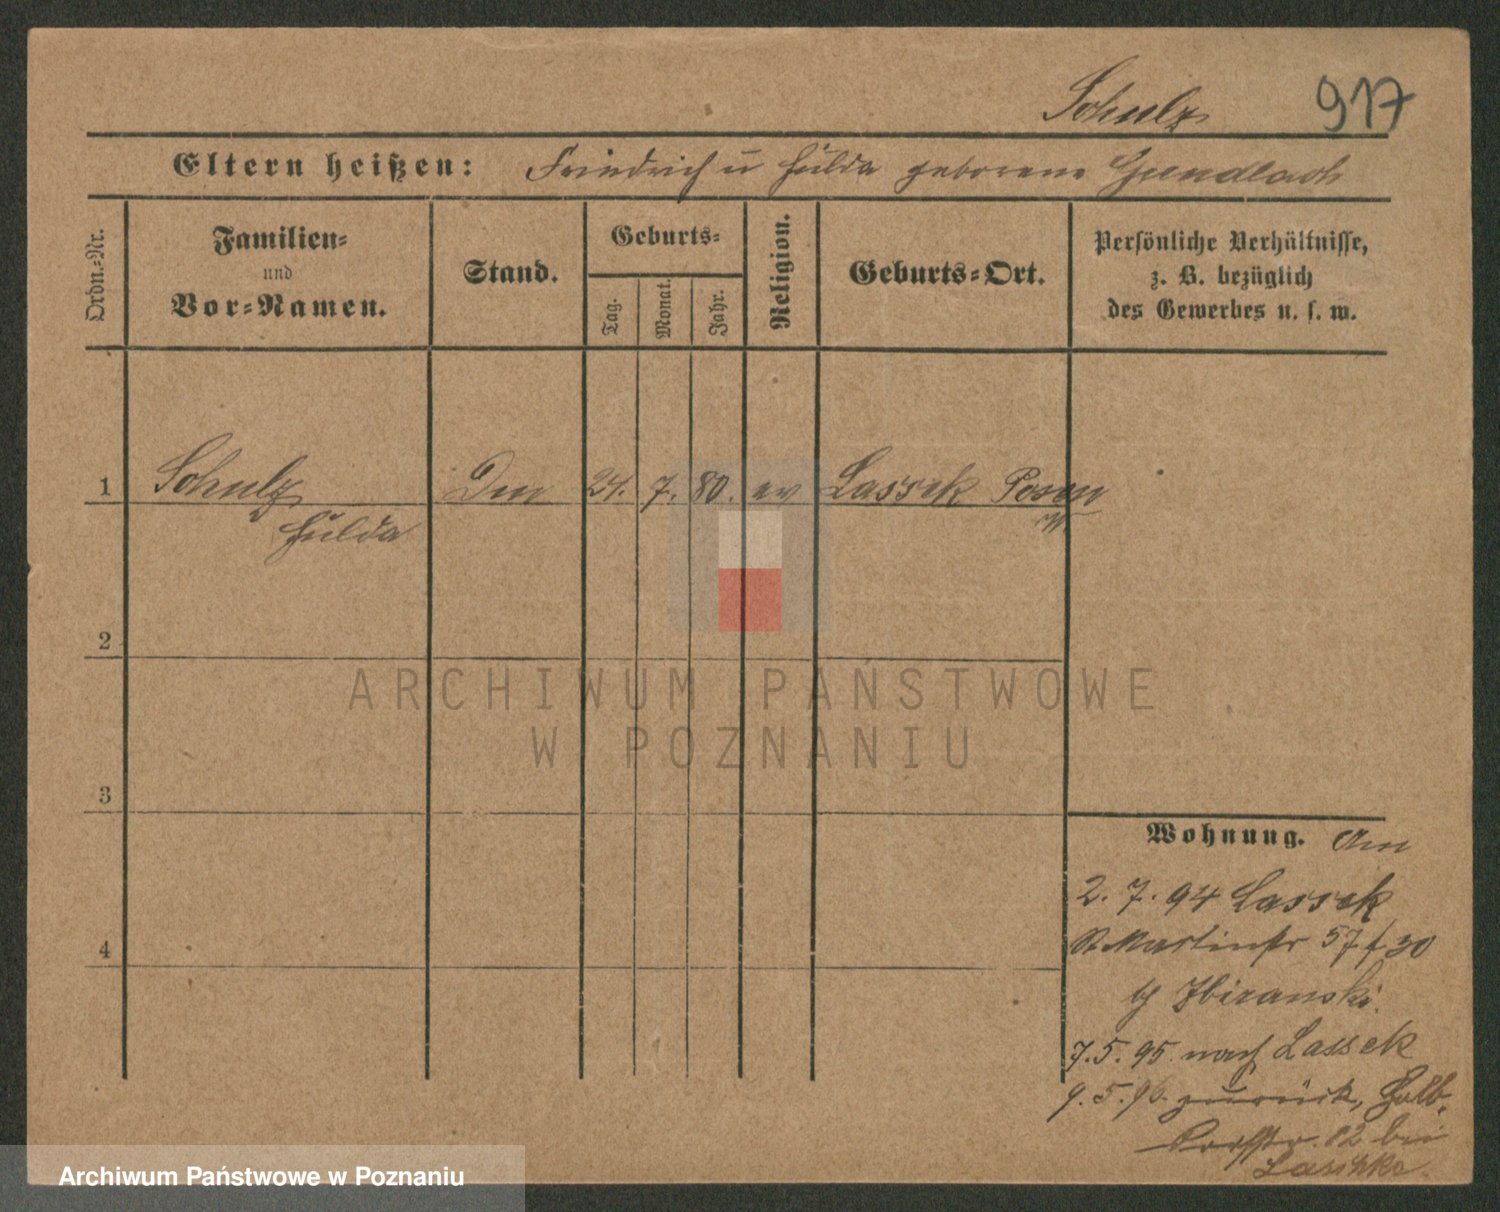 Schulz 917
Eltern heißen: Friedrich u Hulda geborene Gundlach
Ordn.-Nr.
Familien-
und
Vor-Namen.
Stand.
Geburts-
Tag.
Monat.
Jahr.
Religion.
Geburts-Ort.
Persönliche Verhältnisse,
z. B. bezüglich
des Gewerbes u. s. w.
1 Schulz 24. 7. 80. ev Lassek Posen
W
Hulda
2
ARCHIWUM PAŃSTWOWE
W POZNANIU
3
Wohnung. Am
2. 7. 94 Lassek
St Martinstr 57 f. 30
b
7. 5. 95. nach Lassek
9. 5. 96. zurück, Halb-
dorfstr. 12 bei
4
Archiwum Państwowe w Poznaniu